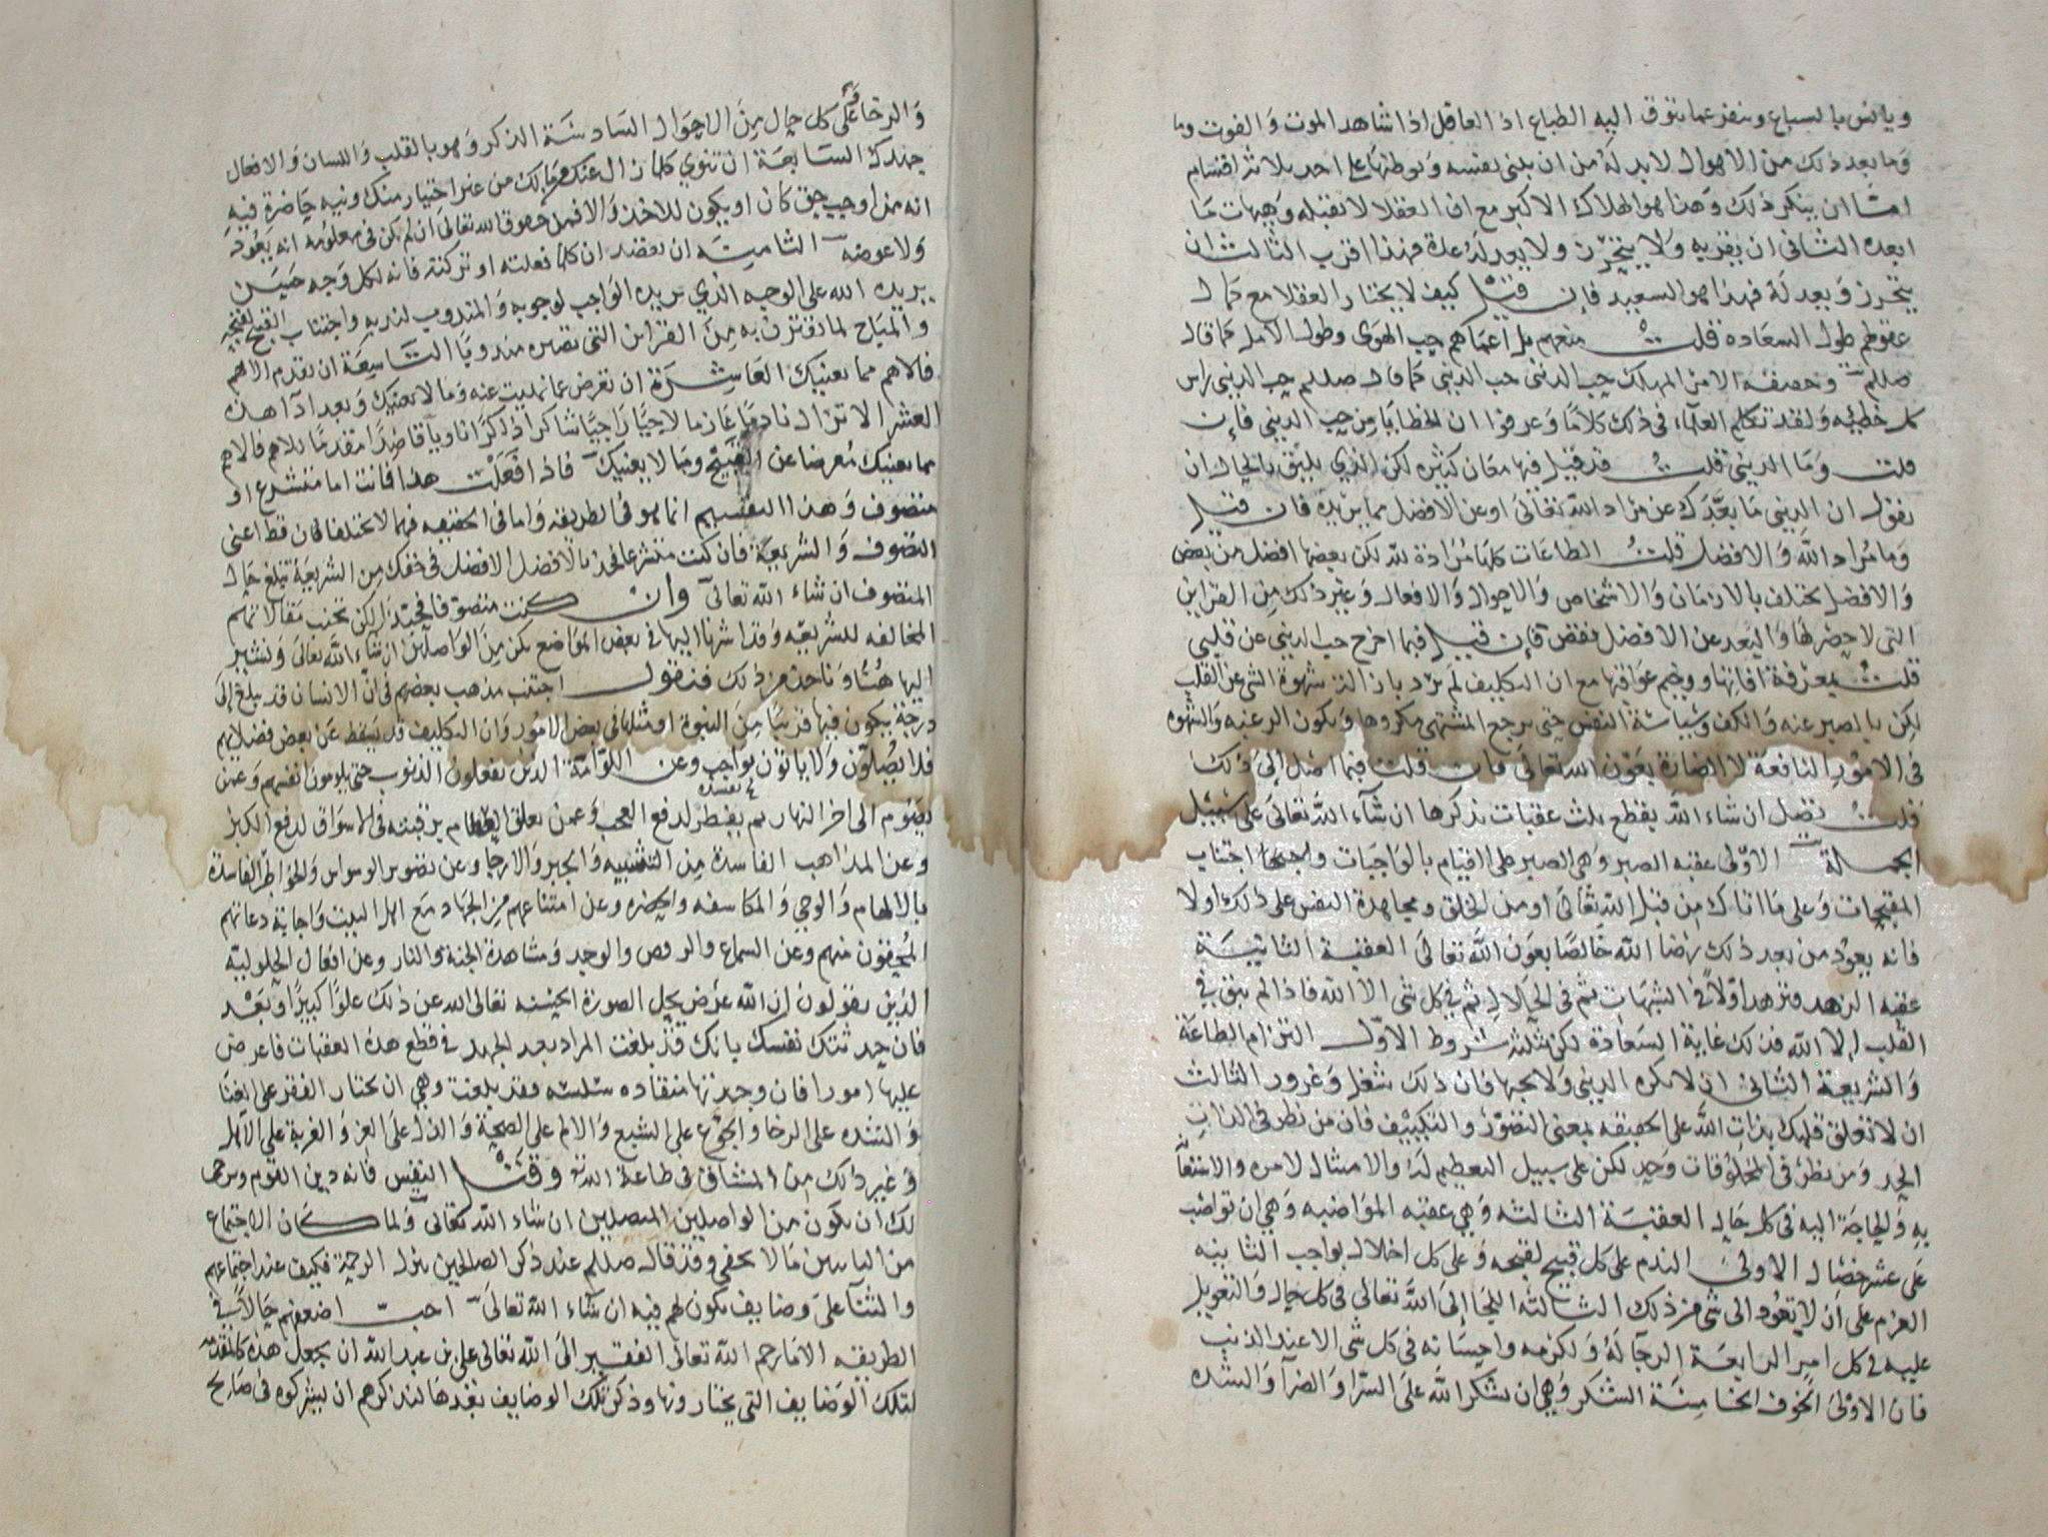 ويانس بالسباع وينفر عما تتوق اليه الطباع اذ العاقل اذا شاهد الموت والفوت وما
وما بعد ذلك من الاهوال لابد له من ان يلقى نفسه ويوطنها على احد ثلاثة اقسام
اما ان ينكر ذلك وهذا هو الهلاك الاكبر مع ان العقلا لا تقبله وجهات ما
ابعده الثاني ان يقربه ولا يتحرز ولا يعد له عدة فهذا اقرب الثالث ان
يتحرز ويعد له فهذا هو السعيد فإن قيل كيف لا يختار العقلا مع كمال
عقولهم طول السعادة قلت منعهم بل اعماهم حب الهوى وطول الامل كما قال
صللم وحقيقة الامر المهلك حب الدنيى حب الدنيى كما قال صللم حب الدنيى راس
كل خطيئه ولقد تكلم العلماء في ذلك كلاما وعرفوا ان الخطايا من حب الدنيى فإن
قلت وما الدنيى قلت قد قيل فيها معان كثيره لكن الذي يليق بالحال ان
نقول ان الدنيى ما بعدك عن مراد الله تعالى او عن الافضل مما يريده فان قيل
وما مراد الله والافضل قلت الطاعات كلها مرادة لله لكن بعضها افضل من بعض
والافضل يختلف بالازمان والاشخاص والاحوال والافعال وغير ذلك من القراين
التي لا حصر لها والبعد عن الافضل نقص فإن قيل فبما اخرج حب الدنيى عن قلبي
قلت بمعرفة افاتها ووخيم عواقبها مع ان التكليف لم يرد بازالة شهوة الشي عن القلب
لكن بالصبر عنه والكف وسياسة النفس حتى يرجع المشتهى مكروها ويكون الرغبه والشهوه
في الامور النافعة لا الضارة بعون الله تعالى فان قلت فبما اصل إلى ذلك
قلت تصل ان شاء الله بقطع ثلث عقبات نذكرها ان شاء الله تعالى على سبيل
الجملة الاولى عقبه الصبر وهي الصبر على القيام بالواجبات واجتناب
المقبحات وعلى ما اتاك من قبل الله تعالى او من الخلق ومجاهدة النفس على ذلك اولا
فانه يعود من بعد ذلك رضا الله خالصا بعون الله تعالى العقبة الثانية
عقبه الزهد فتزهد اولا في الشبهات ثم في الحلال ثم في كل شي الا الله فاذا لم يبق في
القلب إلا الله فذلك غاية السعادة لكن بثلثة شروط الاول التزام الطاعة
والشريعة الثاني ان لا تكره الدنيى ولا تحبها فان ذلك شغل وغرور الثالث
ان لا تعلق قلبك بذات الله على الحقيقه بمعنى التصور والتكييف فان من نظر في الذات
الحد ومن نظر في المخلوقات وحد لكن على سبيل التعظيم له والامتثال لامره والاستعانة
به والحاجة اليه في كل حال العقبة الثالثه وهي عقبه المواظبه وهي ان تواظب
على عشر خصال الاولى الندم على كل قبيح لقبحه وعلى كل اخلال بواجب الثانيه
العزم على ان لا يعود الى شي من ذلك الثالثه اللجا إلى الله تعالى في كل حال والتعويل
عليه في كل امر الرابعة الرجا له ولكرمه واحسانه في كل شي الا عند الذنب
فان الاولى الخوف الخامسة الشكر وهي ان يشكر الله على السرا والضرا والشده
والرخا وعلى كل حال من الاحوال السادسة الذكر وهو بالقلب واللسان والافعال
جهدك السابعة ان تنوي كلما زال عنك من مالك من غير اختيار منك ونيه حاضرة فيه
انه مما اوجب حق كان او يكون للاخذ والا فمن حقوق الله تعالى ان لم يكن في معلومه انه يعود
ولا عوضه الثامنه ان تعتقد ان كلما فعلته او تركته فانه لكل وجه حسن
يريده الله على الوجه الذي يريده الواجب لوجوبه والمندوب لندبه واجتناب القبيح لقبحه
والمباح لما تقترن به من القراين التي تصيره مندوبا التاسعة ان تقدم الاهم
فالاهم مما يعنيك العاشرة ان تعرض عما نهيت عنه وما لا يعنيك وبعد اذا هذه
العشر لا تزال نادما عازما لاجيا راجيا شاكرا ذاكرا ناويا قاصدا مقدما للاهم فالاهم
مما يعنيك معرضا عن القبيح وما لا يعنيك فاذا فعلت هذا فانت اما متشرع او
متصوف وهذا التقسيم انما هو في الطريقه واما في الحقيقه فهما لا يختلفان قط اعني
التصوف والشريعة فان كنت متشرعا فخذ بالافضل الافضل في حقك من الشريعة تبلغ حال
المتصوف ان شاء الله تعالى وان كنت متصوفا فجتهد لكن تجنب مقالاتهم
المخالفه للشريعه وقد اشرنا اليها في بعض المواضع تكن من الواصلين ان شاء الله تعالى ونشير
اليها هنا وناخذ من ذلك فنقول اجتنب مذهب بعضهم في ان الانسان قد يبلغ إلى
درجة يكون فيها قريبا من النبوة او مثلها في بعض الامور وان التكليف قد يسقط عن بعض فضلايهم
فلا يصلون ولا ياتون بواجب وعن اللوامة الذين يفعلون الذنوب حتى يلومون انفسهم وعمن
يصوم الى اخر النهار ثم يفطر لدفع العجب وعمن يعلق العظام برقبته في الاسواق لدفع الكبر
وعن المذاهب الفاسدة من التشبيه والجبر والارجا وعن تصوير الوسواس والخواطر الفاسدة
بالالهام والوحي والمكاشفه والحضره وعن امتناعهم من الجهاد مع اهل البيت واجابة دعاتهم
المحقون منهم وعن السماع والرقص والوجد ومشاهدة الجنة والنار وعن افعال الحلوليه
الذين يقولون ان الله عرض يحل الصورة الحسنه تعالى الله عن ذلك علوا كبيرا وبعد
فان حدثتك نفسك بانك قد بلغت المراد بعد الجهد في قطع هذه العقبات فاعرض
عليها امورا فان وجدتها منقاده سلسه فقد بلغت وهي ان تختار الفقر على الغنا
والشده على الرخا والجوع على الشبع والالم على الصحة والذل على العز والغربة على الاهل
وغير ذلك من المشاق في طاعة الله وقتل النفس فانه دين القوم
لك ان تكون من الواصلين المتصلين ان شاء الله تعالى ولما كان الاجتماع
من الناس ما لا يخفى وقد قال صللم عند ذكر الصالحين تنزل الرحمة فكيف عند اجتماعهم
والثنا على وضايف تكون لهم فيه ان شاء الله تعالى احب اضعفهم حالا في
الطريقه الا ما رحم الله تعالى الفقير الى الله تعالى علي بن عبد الله ان يجعل هذه كالمقدمه
لتلك الوضايف التي يختارونها وذكر تلك الوضايف بعدها لتذاكرهم ان يشركوه في صالح